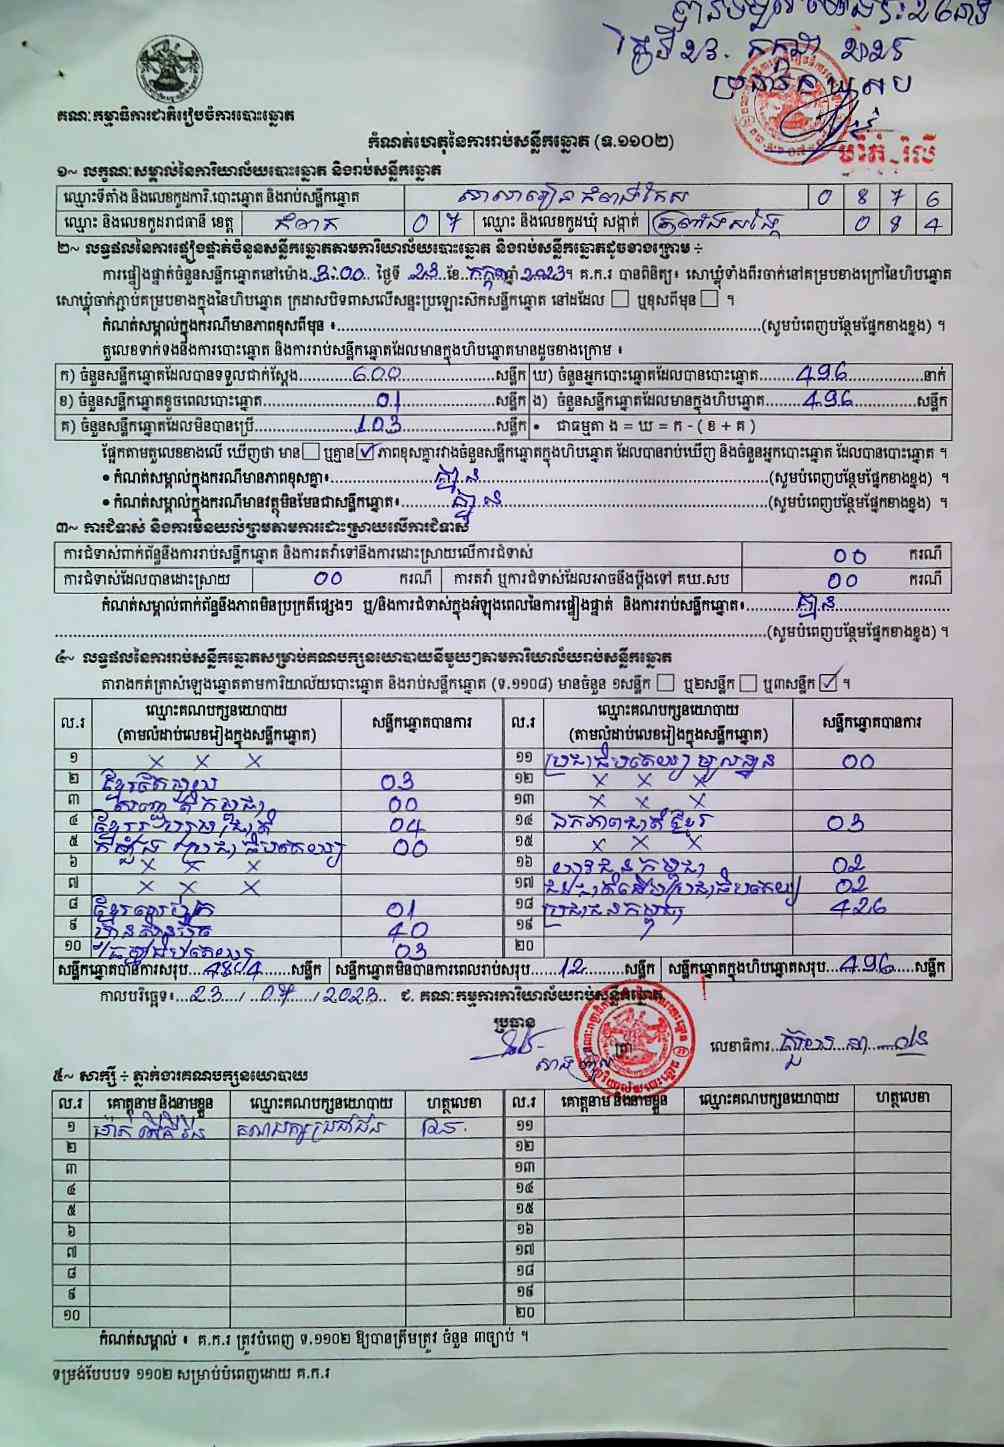 គណៈកម្មាធិការជាតិរៀបចំការបោះឆ្នោត
កំណត់ហេតុនៃការរាប់សន្លឹកឆ្នោត (ទ.១១០២)
១~ លក្ខណៈសម្គាល់នៃការិយាល័យបោះឆ្នោត និងរាប់សន្លឹកឆ្នោត
ឈ្មោះទីតាំង និងលេខកូដការិ.បោះឆ្នោត និងរាប់សន្លឹកឆ្នោត សាលារៀន 0 8 7 6
ឈ្មោះ និងលេខកូដរាជធានី ខេត្ត កំពត 0 7 ឈ្មោះ និងលេខកូដឃុំ សង្កាត់ 0 8 4
២~ លទ្ធផលនៃការផ្ទៀងផ្ទាត់ចំនួនសន្លឹកឆ្នោតតាមការិយាល័យបោះឆ្នោត និងរាប់សន្លឹកឆ្នោតដូចខាងក្រោម ÷
ការផ្ទៀងផ្ទាត់ចំនួនសន្លឹកឆ្នោតនៅម៉ោង 3:00 ថ្ងៃទី 23 ខែ កក្កដា ឆ្នាំ 2023។ គ.ក.រ បានពិនិត្យ៖ សោឃ្លុំទាំងពីរចាក់នៅគម្របខាងក្រៅនៃហិបឆ្នោត
សោឃ្លុំចាក់ភ្ជាប់គម្របខាងក្នុងនៃហិបឆ្នោត ក្រដាសបិទពាសលើសន្ទះប្រឡោះសិកសន្លឹកឆ្នោត នៅដដែល ☐ ឬខុសពីមុន ☐ ។
កំណត់សម្គាល់ក្នុងករណីមានភាពខុសពីមុន ៖ (សូមបំពេញបន្ថែមផ្នែកខាងខ្នង) ។
តួលេខទាក់ទងនឹងការបោះឆ្នោត និងការរាប់សន្លឹកឆ្នោតដែលមានក្នុងហិបឆ្នោតមានដូចខាងក្រោម ៖
ក) ចំនួនសន្លឹកឆ្នោតដែលបានទទួលជាក់ស្តែង 600 សន្លឹក ឃ) ចំនួនអ្នកបោះឆ្នោតដែលបានបោះឆ្នោត 496 នាក់
ខ) ចំនួនសន្លឹកឆ្នោតខូចពេលបោះឆ្នោត 01 សន្លឹក ង) ចំនួនសន្លឹកឆ្នោតដែលមានក្នុងហិបឆ្នោត 496 សន្លឹក
គ) ចំនួនសន្លឹកឆ្នោតដែលមិនបានប្រើ 103 សន្លឹក • ជាធម្មតា ង = ឃ = ក - ( ខ + គ )
ផ្អែកតាមតួលេខខាងលើ ឃើញថា មាន ☐ ឬគ្មាន ☑ ភាពខុសគ្នារវាងចំនួនសន្លឹកឆ្នោតក្នុងហិបឆ្នោត ដែលបានរាប់ឃើញ និងចំនួនអ្នកបោះឆ្នោត ដែលបានបោះឆ្នោត ។
• កំណត់សម្គាល់ក្នុងករណីមានភាពខុសគ្នា៖ គ្មាន (សូមបំពេញបន្ថែមផ្នែកខាងខ្នង) ។
• កំណត់សម្គាល់ក្នុងករណីមានវត្ថុមិនមែនជាសន្លឹកឆ្នោត៖ គ្មាន (សូមបំពេញបន្ថែមផ្នែកខាងខ្នង) ។
៣~ ការជំទាស់ និងការមិនយល់ព្រមតាមការដោះស្រាយលើការជំទាស់
ការជំទាស់ពាក់ព័ន្ធនឹងការរាប់សន្លឹកឆ្នោត និងការតវ៉ាទៅនឹងការដោះស្រាយលើការជំទាស់ 00 ករណី
ការជំទាស់ដែលបានដោះស្រាយ 00 ករណី ការតវ៉ា ឬការជំទាស់ដែលអាចនឹងប្តឹងទៅ គឃ.សប 00 ករណី
កំណត់សម្គាល់ពាក់ព័ន្ធនឹងភាពមិនប្រក្រតីផ្សេងៗ ឬ/និងការជំទាស់ក្នុងអំឡុងពេលនៃការផ្ទៀងផ្ទាត់ និងការរាប់សន្លឹកឆ្នោត៖ គ្មាន
(សូមបំពេញបន្ថែមផ្នែកខាងខ្នង) ។
៤~ លទ្ធផលនៃការរាប់សន្លឹកឆ្នោតសម្រាប់គណបក្សនយោបាយនីមួយៗតាមការិយាល័យរាប់សន្លឹកឆ្នោត
តារាងកត់ត្រាសំឡេងឆ្នោតតាមការិយាល័យបោះឆ្នោត និងរាប់សន្លឹកឆ្នោត (ទ.១១០៨) មានចំនួន ១សន្លឹក ☐ ឬ២សន្លឹក ☐ ឬ៣សន្លឹក ☑ ។
ល.រ ឈ្មោះគណបក្សនយោបាយ (តាមលំដាប់លេខរៀងក្នុងសន្លឹកឆ្នោត) សន្លឹកឆ្នោតបានការ ល.រ ឈ្មោះគណបក្សនយោបាយ (តាមលំដាប់លេខរៀងក្នុងសន្លឹកឆ្នោត) សន្លឹកឆ្នោតបានការ
១ X X X ១១ ប្រជាធិបតេយ្យមូលដ្ឋាន 00
២ ខ្មែរតែមួយ 03 ១២ X X X
៣ សញ្ជាតិកម្ពុជា 00 ១៣ X X X
៤ ខ្មែររួបរួមជាតិ 04 ១៤ ឯកភាពជាតិខ្មែរ 03
៥ កម្លាំងប្រជាធិបតេយ្យ 00 ១៥ X X X
៦ X X X ១៦ យុវជនកម្ពុជា 02
៧ X X X ១៧ ជនជាតិដើមប្រជាធិបតេយ្យ 02
៨ ខ្មែរឈប់ក្រ 01 ១៨ ប្រជាជនកម្ពុជា 426
៩ ហ៊្វុនស៊ិនប៉ិច 40 ១៩
១០ 03 ២០
សន្លឹកឆ្នោតបានការសរុប 484 សន្លឹក សន្លឹកឆ្នោតមិនបានការពេលរាប់សរុប 12 សន្លឹក សន្លឹកឆ្នោតក្នុងហិបឆ្នោតសរុប 496 សន្លឹក
កាលបរិច្ឆេទ៖ 23 / 07 / 2023 ជ. គណៈកម្មការការិយាល័យរាប់សន្លឹកឆ្នោត
ប្រធាន
លេខាធិការ
៥~ សាក្សី ÷ ភ្នាក់ងារគណបក្សនយោបាយ
ល.រ គោត្តនាម និងនាមខ្លួន ឈ្មោះគណបក្សនយោបាយ ហត្ថលេខា ល.រ គោត្តនាម និងនាមខ្លួន ឈ្មោះគណបក្សនយោបាយ ហត្ថលេខា
១ គណបក្សប្រជាជន ១១
២ ១២
៣ ១៣
៤ ១៤
៥ ១៥
៦ ១៦
៧ ១៧
៨ ១៨
៩ ១៩
១០ ២០
កំណត់សម្គាល់ ៖ គ.ក.រ ត្រូវបំពេញ ទ.១១០២ ឱ្យបានត្រឹមត្រូវ ចំនួន ៣ច្បាប់ ។
ទម្រង់បែបបទ ១១០២ សម្រាប់បំពេញដោយ គ.ក.រ